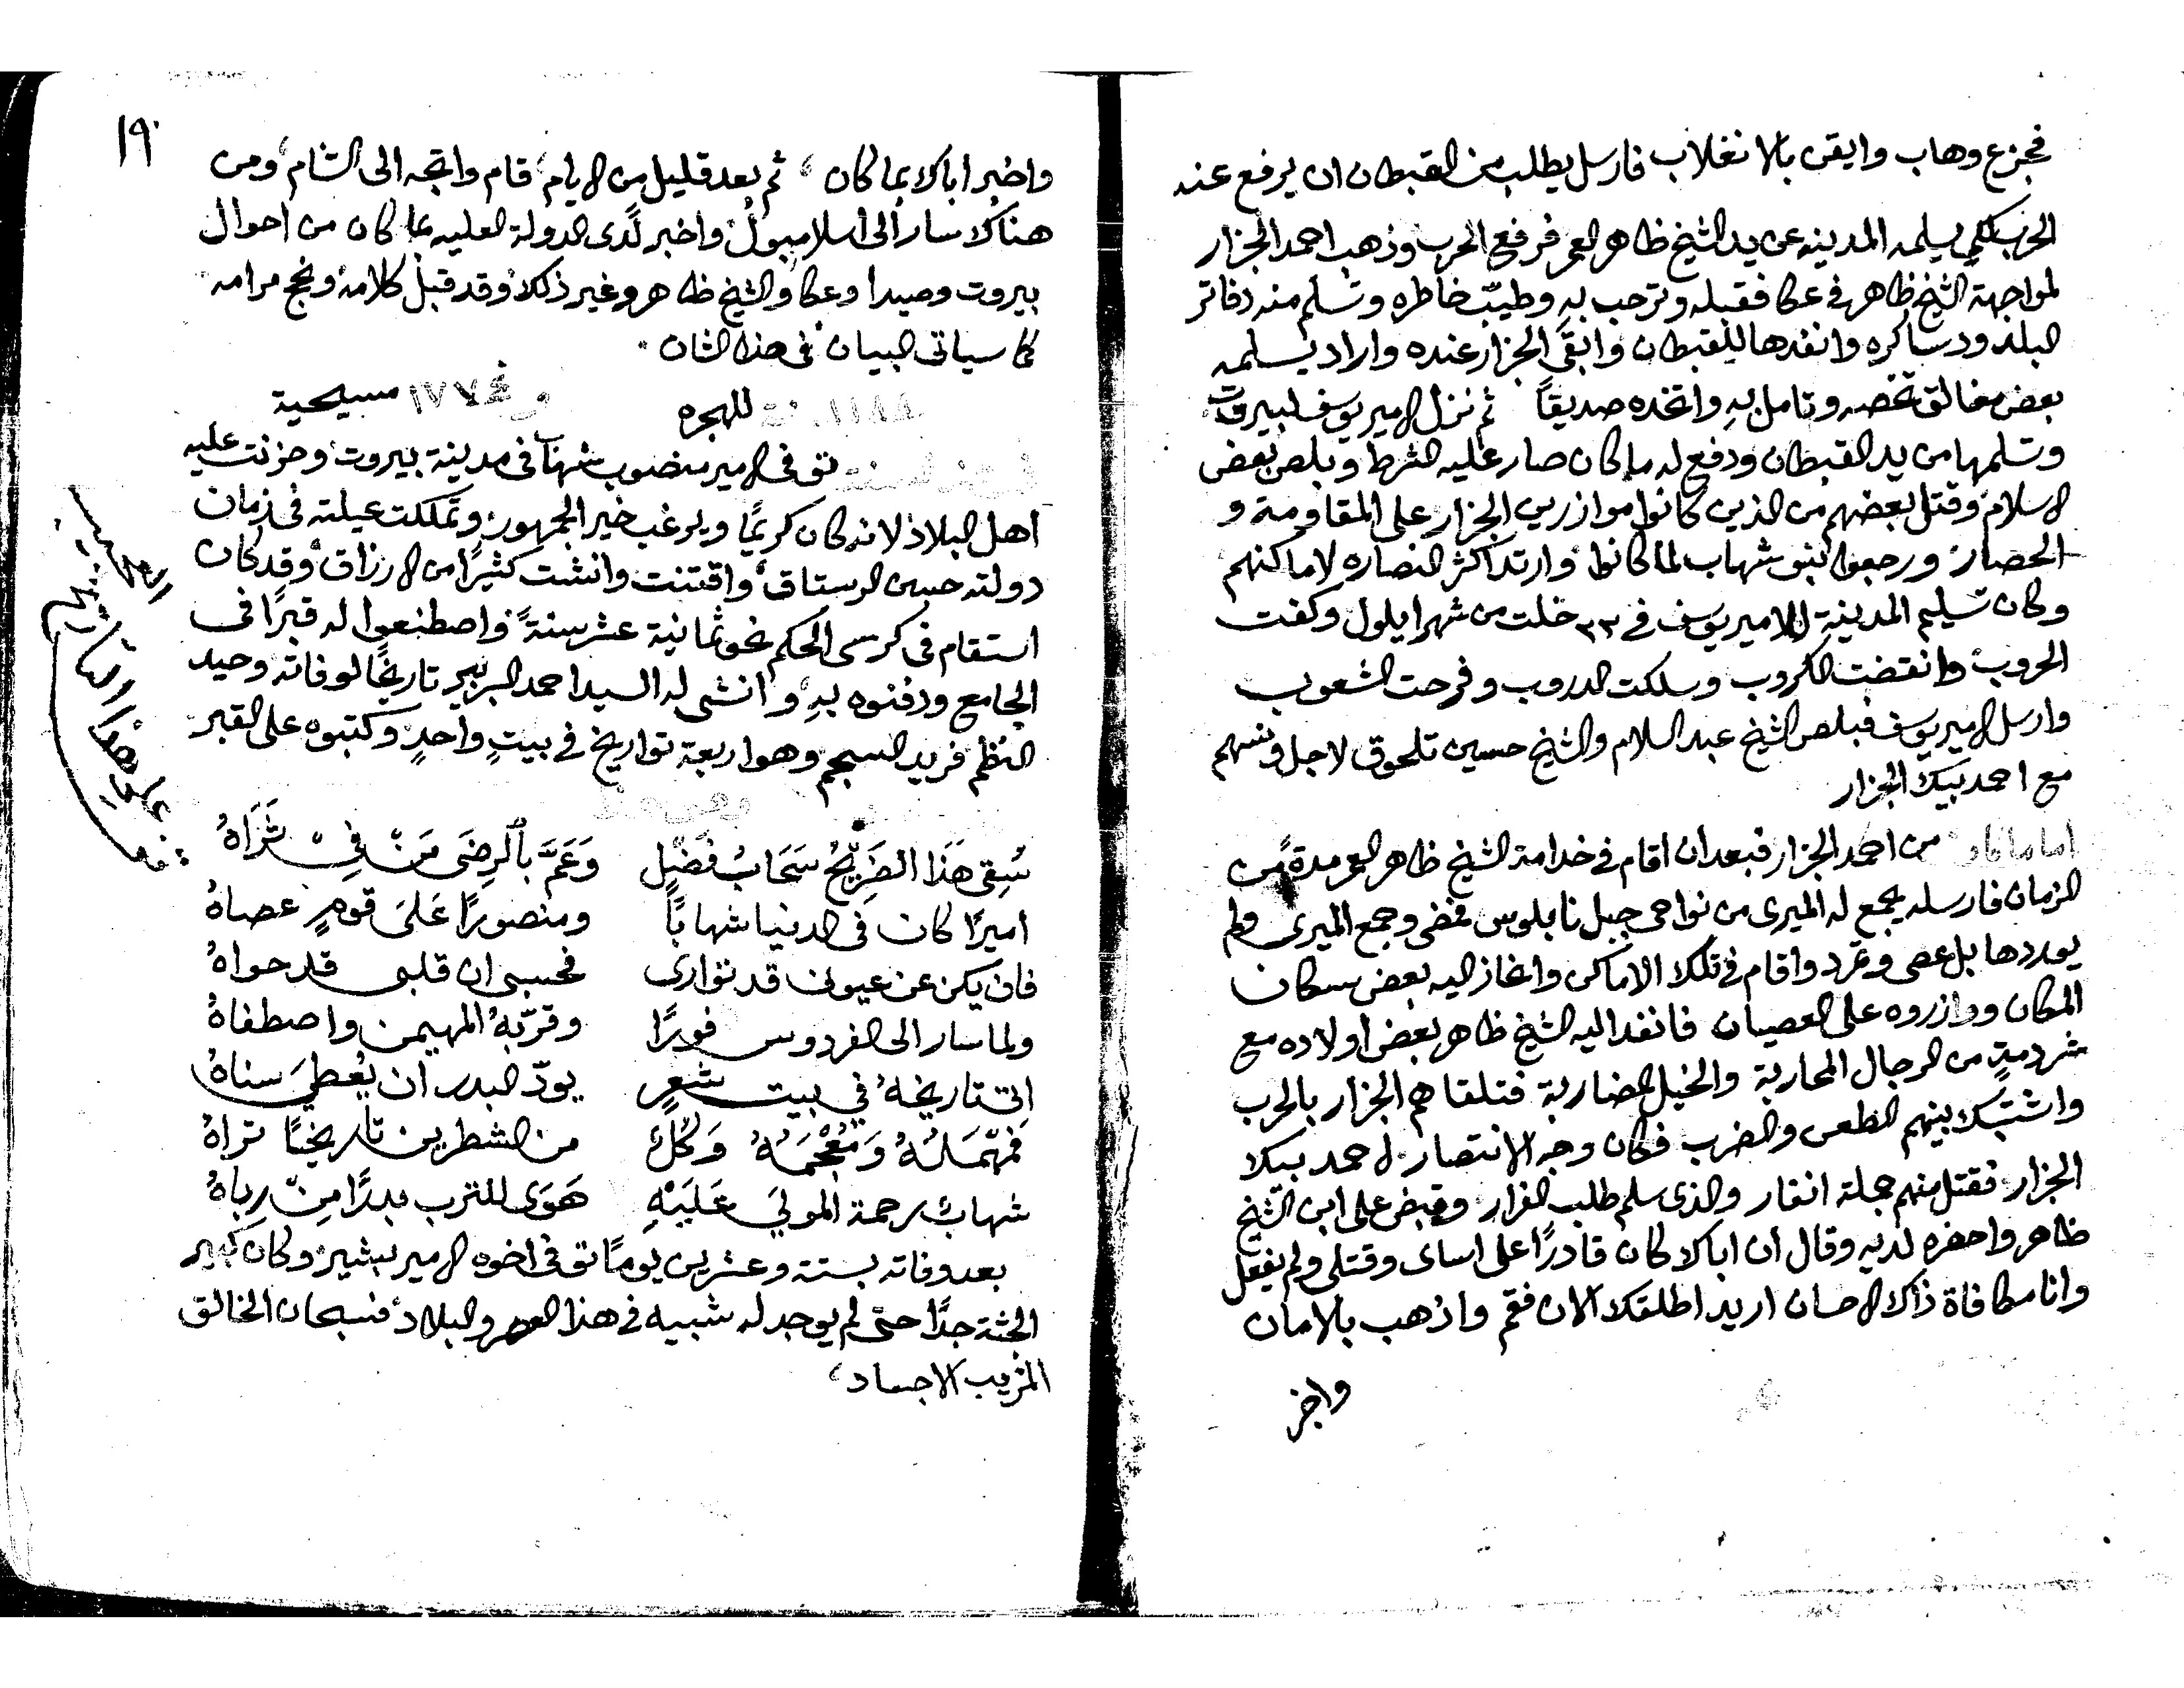 فجزع وهاب وايقن بالانغلاب فارسل يطلب من القبطان ان يرفع عنه
الحرب لكي يسلمه المدينه عن يد الشيخ ظاهر العمر فرفع الحرب وذهب احمد الجزار
لمواجهة الشيخ ظاهر في عكا فقبله وترحب بهِ وطيّب خاطره وتسلم منه دفاتر
البلد ودساكره وانفدها للقبطان وابقى الجزار عنده واراد يسلمه
بعض مغالق تخصه وتامل بهِ واتخده صديقاً ثم نزل الامير يوسف لبيروت
وتسلمها من يد القبطان ودفع له ما كان صار عليه الشرط وبلص بعض
الاسلام وقتل بعضهم من الذين كانوا موازرين الجزار على المقاومة و
الحصار ورجعوا بنو شهاب لما كانوا وارتد اكثر النصاره لاماكنهم
وكان تسليم المدينةِ للامير يوسف في ٢٣ خلت من شهر ايلول وكفت
الحروب وانقضت الكروب وسلكت الدروب وفرحت الشعوب
وارسل الامير يوسف فبلص الشيخ عبد السلام والشيخ حسين تلحوق لاجل
مع احمد بيك الجزار
اما ما كان من احمد الجزار فبعد ان اقام في خدامة الشيخ ظاهر العمر مدةً من
الزمان فارسله يجمع له الميرى من نواحى جبل نابلوس فمضى وجمع الميرى ولم
يوردها بل عصى وتمرد واقام في تلك الاماكن وانحاز اليه بعض سكان
المكان ووازروه على العصيان فانفد اليه الشيخ ظاهر بعض اولاده مع
شردمةٍ من الرجال المحاربة والخيل الضاربة فتلقاهم الجزار بالحرب
واشتبك بينهم الطعن والضرب فكان وجه الانتصار لاحمد بيك
الجزار فقتل منهم جملة انفار والذى سلم طلب الفرار وقبض على ابن الشيخ
ظاهر واحضره لديه وقال ان اباك كان قادرًا على اساى وقتلى ولم يفعل
وانا مكافاة ذاك الاحسان اريد اطلقك الان فقم واذهب بالامان
واخبر
١٩
واخبر اباك بما كان ثم بعد قليل من الايام قام واتجه الى الشام ومن
هناك سار الى اسلامبول واخبر لدى الدولة العليه بما كان من احوال
بيروت وصيدا وعكا والشيخ ظاهر وغير ذلك وقد قبل كلامه ونجح مرامه
كما سياتى البيان فى هذا الشان
١١٨٨ للهجره مسيحية
توفى الامير منصور شهاب فى مدينة بيروت وحزنت عليه
اهل البلاد لانه كان كريمًا ويرغب خير الجمهور وتملكت عيلته فى زمان
دولته حسين الرستاق واقتنت وانشت كثيرًا من الارزاق وقد كان
استقام فى كرسى الحكم نحو ثمانية عشر سنةً واصطنعوا له قبرًا فى
الجامع ودفنوه بهِ وانشى له السيد احمد البربير تاريخًا لوفاته وحيد
النظم فريد السجم وهو اربعة تواريخ فى بيتٍ واحدٍ وكتبوه على القبر
سُقِى هَذَا الضَرِيْحُ سَحَابُ فَضْلٍ وَعَمَّ بِالرِضَى مَنْ فِىْ ثَرَاهُ
اميرًا كان فى الدنيا شهابًا ومنصورًا عَلىَ قومٍ عصاهُ
فان يكن عن عيونى قد توارى فحسبى ان قلبى قد حواهُ
ولما سار الى الفردوس فورًا وقرّبهُ المهيمن واصطفاهُ
اتى تاريخهُ في بيت شعرٍ يودّ البدر ان يُعطَي سناهُ
فَمُهْمَلُهُ وَمُعْجَمُهُ وَكُلٌّ من الشطرين تاريخًا تراهُ
شهابٌ رحمة المولَي عَلَيْهِ هَوَى للترب بدرًا مِنْ رباهُ
بعد وفاته بستة وعشرين يومًا توفى اخوه الامير بشير وكان كبير
الجثة جدًا حتى لم يوجد له شبيه فى هذا العصر والبلاد فسبحان الخالق